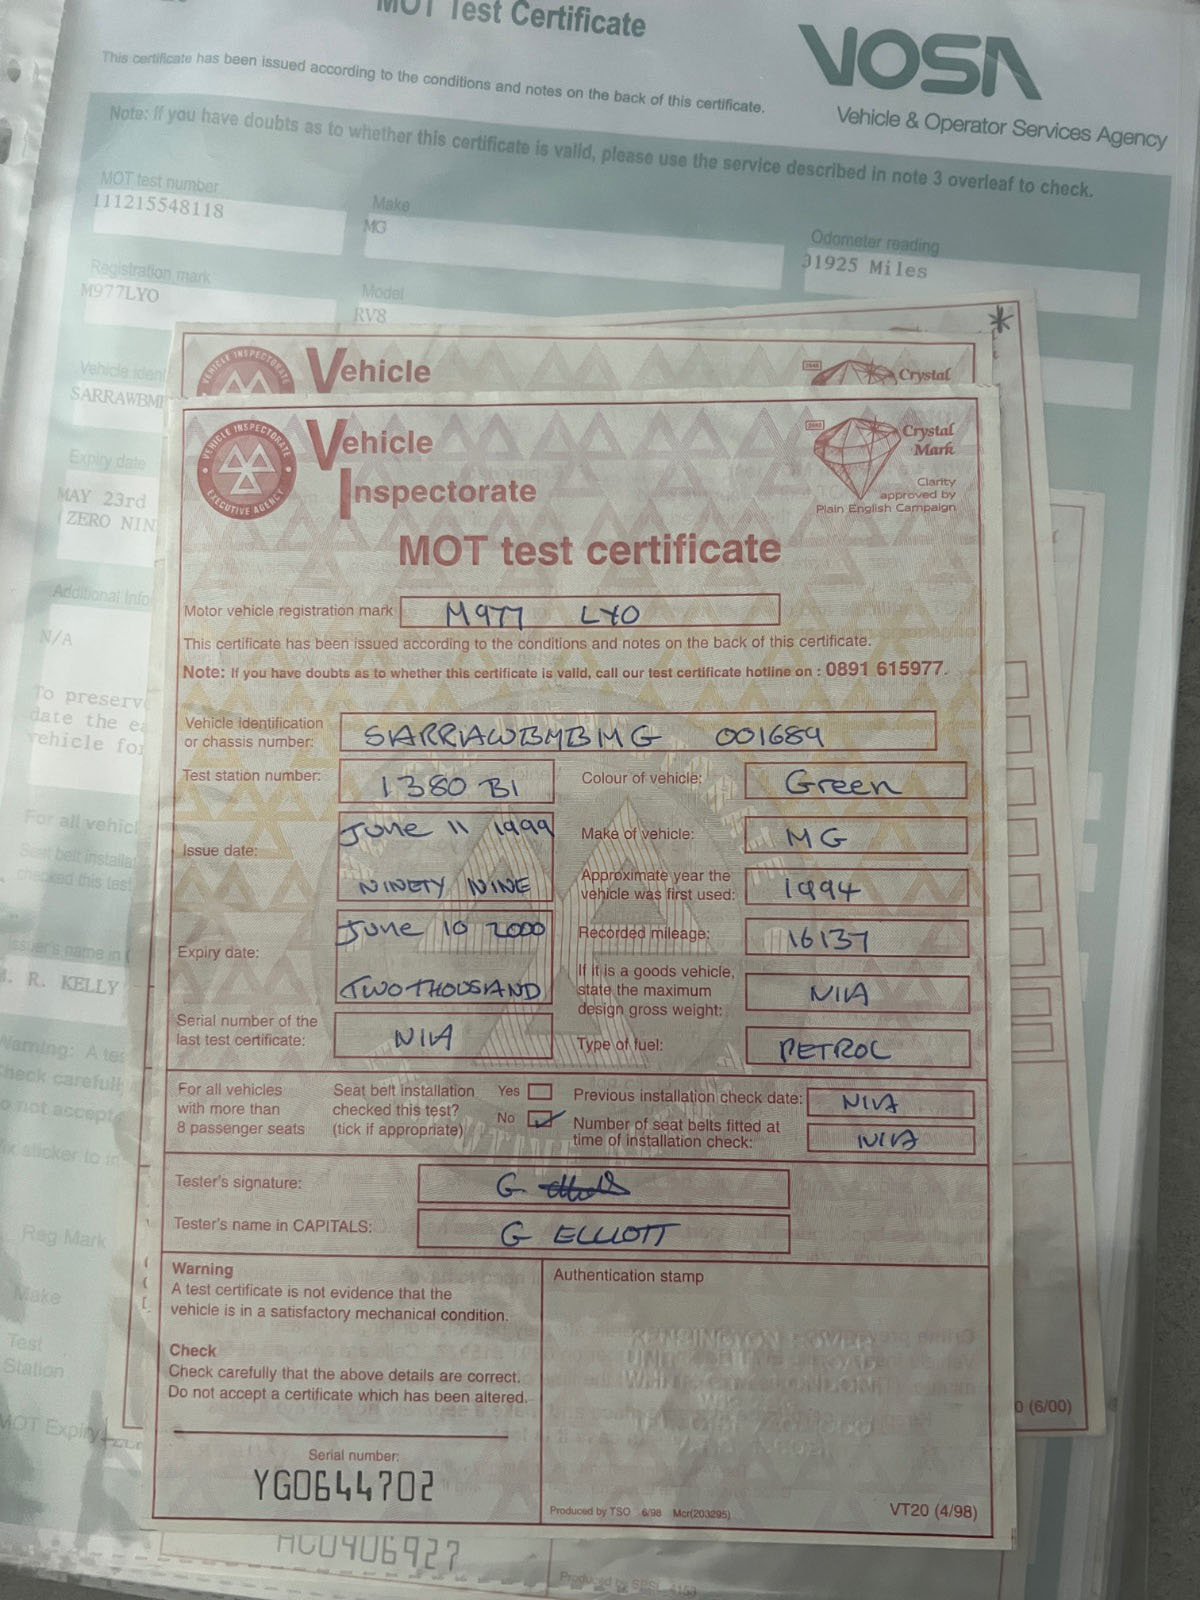 MOT Test Certificate
VOSA
Vehicle & Operator Services Agency
This certificate has been issued according to the conditions and notes on the back of this certificate.
Note: If you have doubts as to whether this certificate is valid, please use the service described in note 3 overleaf to check.
MOT test number
111215548118
Make
MG
Odometer reading
31925 Miles
Registration mark
M977LYO
Model
RV8
Vehicle iden
SARRAWBM
Expiry date
MAY 23rd
(ZERO NIN
Additional Info
N/A
To preserv
date the ea
vehicle for
For all vehicl
Seat belt installa
checked this test
Issuer's name in
R. KELLY
Warning: A tes
Check carefull
o not accept
sticker to
Reg Mark
Make
Test
Station
MOT Expiry
*
Vehicle
Crystal
VEHICLE INSPECTORATE
EXECUTIVE AGENCY
Vehicle
Inspectorate
Crystal
Mark
Clarity
approved by
Plain English Campaign
MOT test certificate
Motor vehicle registration mark M977 LYO
This certificate has been issued according to the conditions and notes on the back of this certificate.
Note: If you have doubts as to whether this certificate is valid, call our test certificate hotline on : 0891 615977.
Vehicle identification
or chassis number: SARRAWBMBMG 001689
Test station number: 1380 B1
Colour of vehicle: Green
Issue date: June 11 1999
NINETY NINE
Make of vehicle: MG
Approximate year the
vehicle was first used: 1994
Expiry date: June 10 2000
TWO THOUSAND
Recorded mileage: 16137
If it is a goods vehicle,
state the maximum
design gross weight: N/A
Serial number of the
last test certificate: N/A
Type of fuel: PETROL
For all vehicles
with more than
8 passenger seats
Seat belt installation
checked this test?
(tick if appropriate)
Yes
No
Previous installation check date: N/A
Number of seat belts fitted at
time of installation check: N/A
Tester's signature: G
Tester's name in CAPITALS: G ELLIOTT
Warning
A test certificate is not evidence that the
vehicle is in a satisfactory mechanical condition.
Check
Check carefully that the above details are correct.
Do not accept a certificate which has been altered.
Authentication stamp
KENSINGTON
Serial number:
YG0644702
Produced by TSO 6/98 Mcr(203295)
VT20 (4/98)
0 (6/00)
AC0406927
Produced by SPSL